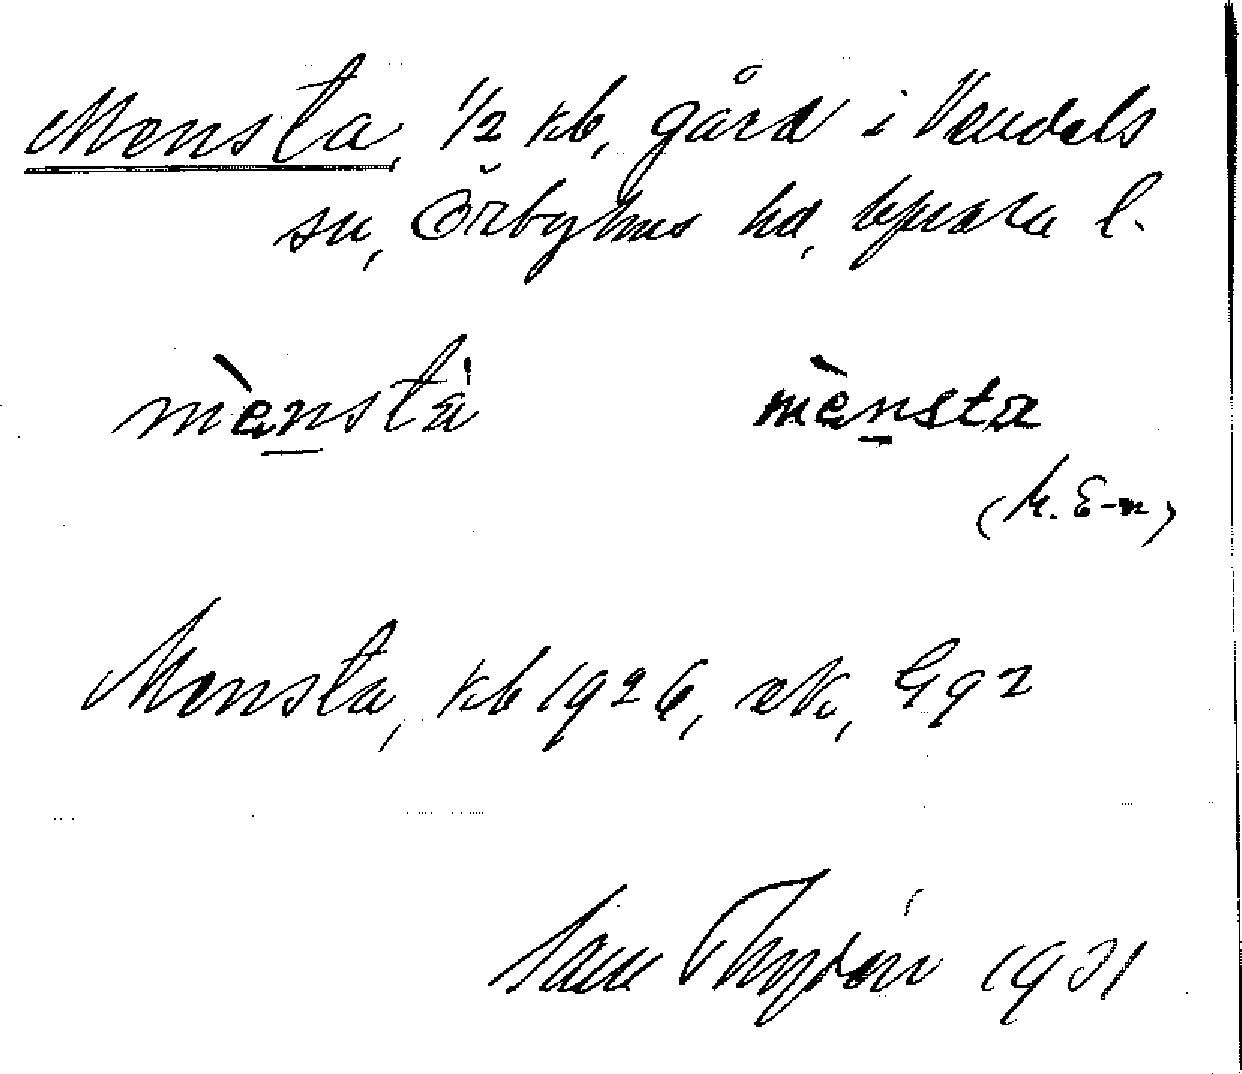 Mensta, 1/2 kb, gård i Vendals
sn, Örbyhus hd, Upsala l.
mènstà mènsta
(M. E-n)
Mensta, kb 1926, ek, Gg2
1931